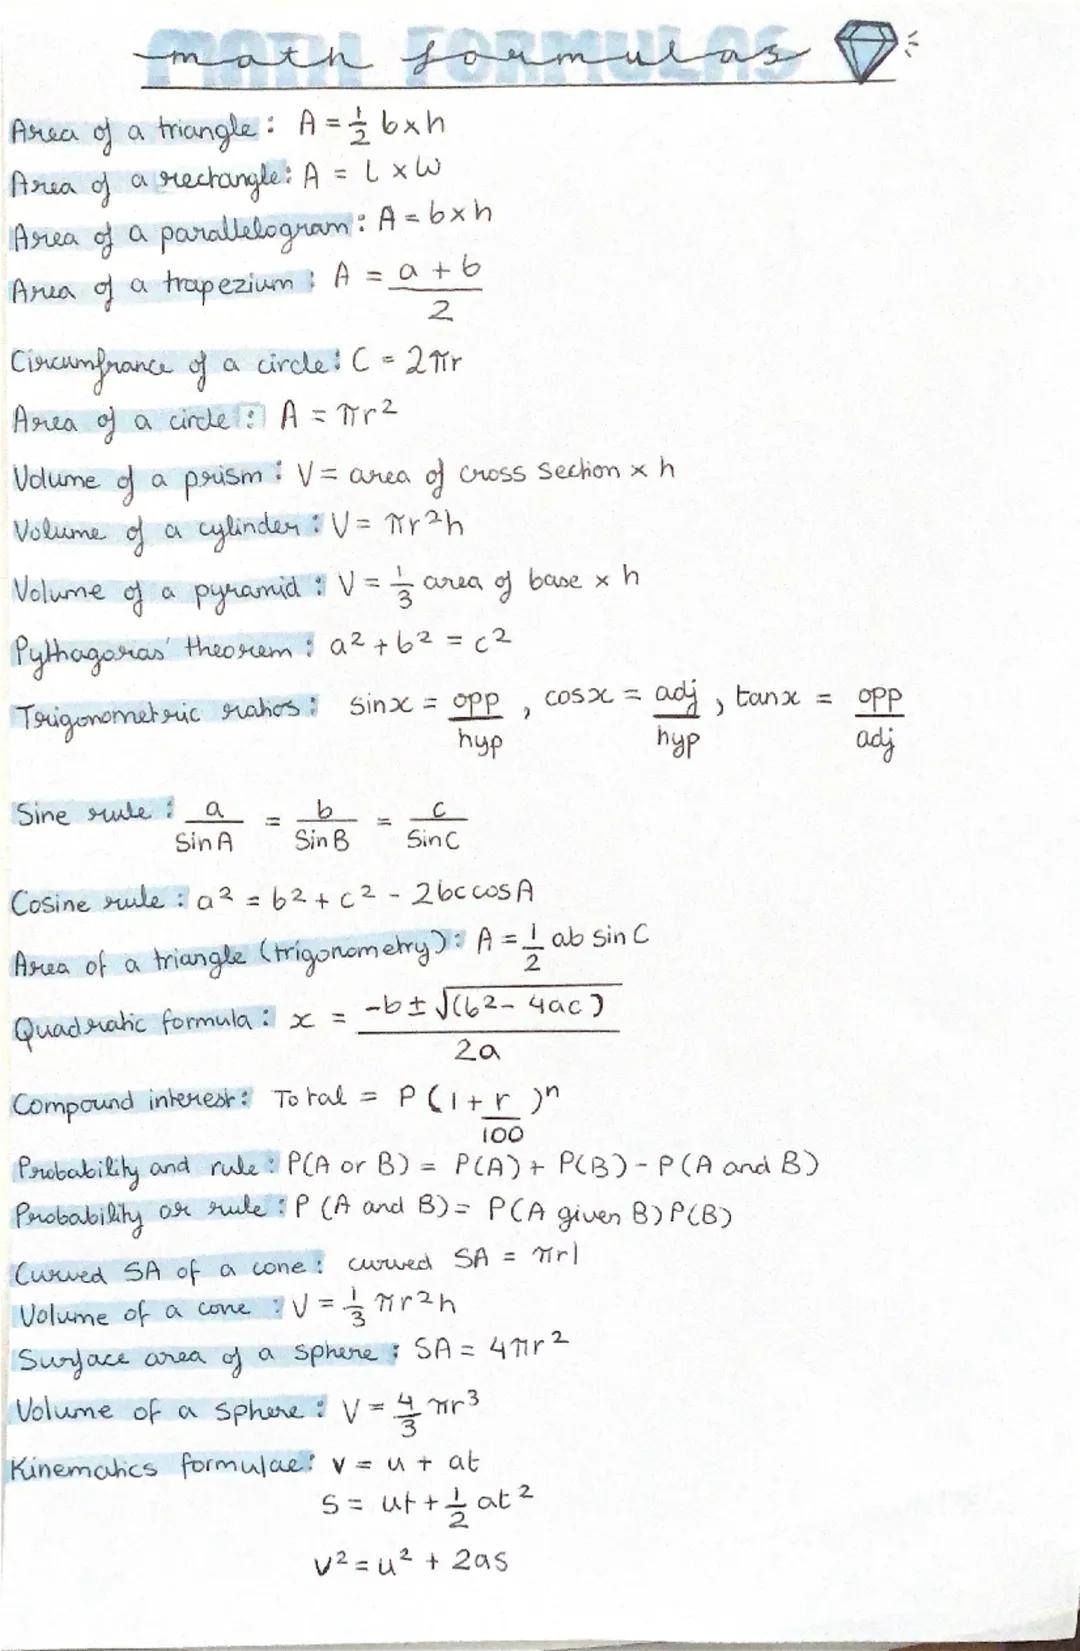 MATH FORMULAS
math formulas
Area of a triangle: A = 1/2 b×h
Area of a rectangle: A = L × W
Area of a parallelogram: A = b×h
Area of a trapezium: A = (a + b)/2
Circumfrance of a circle: C = 2πr
Area of a circle: A = πr²
Volume of a prism: V = area of cross section × h
Volume of a cylinder: V = πr²h
Volume of a pyramid: V = 1/3 area of base × h
Pythagoras' theorem: a² + b² = c²
Trigonometric ratios: sinx = opp/hyp, cosx = adj/hyp, tanx = opp/adj
Sine rule: a/SinA = b/SinB = c/SinC
Cosine rule: a² = b² + c² - 2bccosA
Area of a triangle (trigonometry): A = 1/2 ab sin C
Quadratic formula: x = (-b ± √(b² - 4ac))/2a
Compound interest: Total = P(1 + r/100)ⁿ
Probability and rule: P(A or B) = P(A) + P(B) - P(A and B)
Probability or rule: P(A and B) = P(A given B)P(B)
Curved SA of a cone: curved SA = πrl
Volume of a cone: V = 1/3 πr²h
Surface area of a sphere: SA = 4πr²
Volume of a sphere: V = 4/3 πr³
Kinematics formulae: v = u + at
s = ut + 1/2 at²
v² = u² + 2as